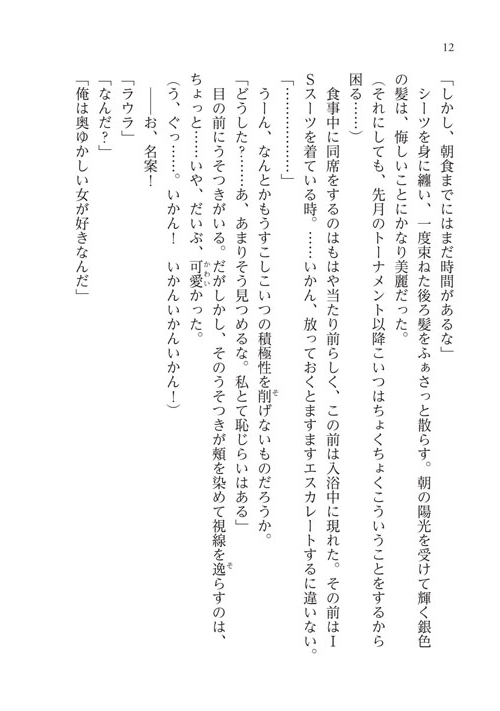 12
「しかし、朝食までにはまだ時間があるな」
シーツを身に纏い、一度束ねた後ろ髪をふぁさっと散らす。朝の陽光を受けて輝く銀色
の髪は、悔しいことにかなり美麗だった。
（それにしても、先月のトーナメント以降こいつはちょくちょくこういうことをするから
困る……）
食事中に同席をするのはもはや当たり前らしく、この前は入浴中に現れた。その前はＩ
Ｓスーツを着ている時。……いかん、放っておくとますますエスカレートするに違いない。
「………………」
うーん、なんとかもうすこしこいつの積極性を削げないものだろうか。
「どうした？……あ、あまりそう見つめるな。私とて恥じらいはある」
目の前にうそつきがいる。だがしかし、そのうそつきが頬を染めて視線を逸らすのは、
ちょっと……いや、だいぶ、可愛かった。
（う、ぐっ……。いかん！　いかんいかんいかん！）
――お、名案！
「ラウラ」
「なんだ？」
「俺は奥ゆかしい女が好きなんだ」